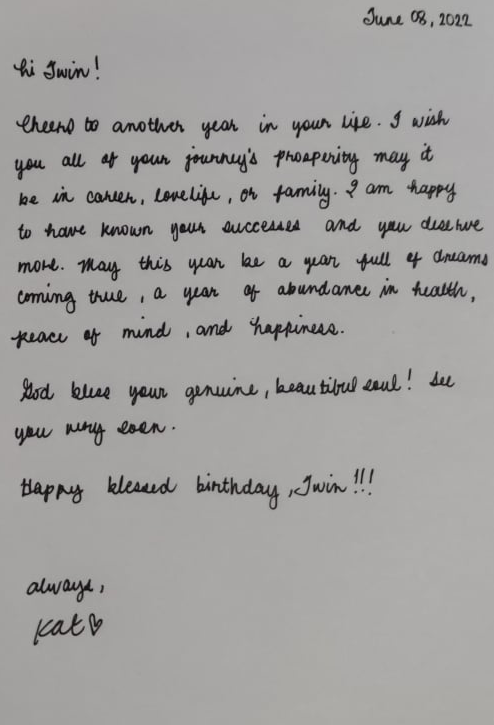 June 08, 2022
hi Twin!
Cheers to another year in your life. I wish
you all of your journey's prosperity may it
be in career, lovelife, or family. I am happy
to have known your successes and you deserve
more. May this year be a year full of dreams
coming true, a year of abundance in health,
peace of mind, and happiness.
God bless your genuine, beautiful soul! See
you very soon.
Happy blessed birthday, Twin!!!
always,
Kat♡